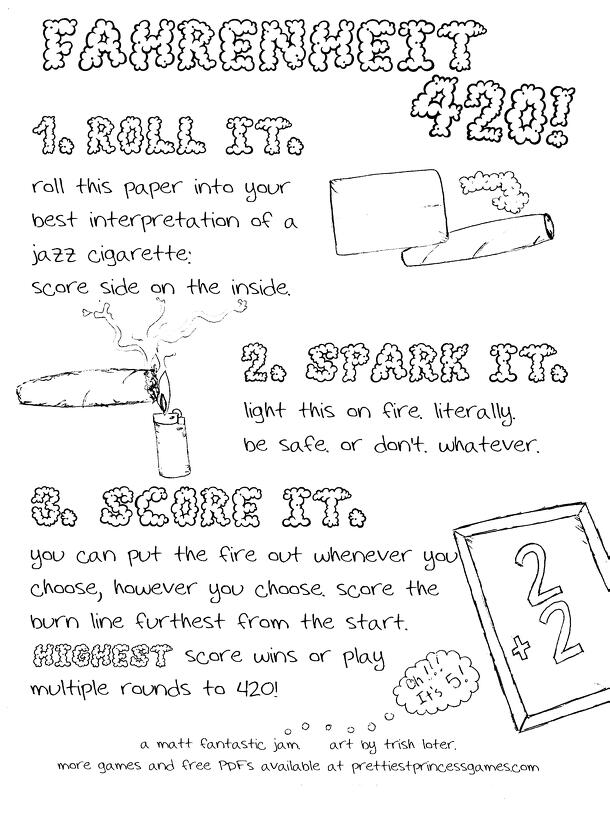 FAHRENHEIT
420!
1. ROLL IT.
roll this paper into your
best interpretation of a
jazz cigarette:
score side on the inside.
2. SPARK IT.
light this on fire. literally.
be safe. or don't. whatever.
3. SCORE IT.
you can put the fire out whenever you
choose, however you choose. score the
burn line furthest from the start.
HIGHEST score wins or play
multiple rounds to 420!
2
+2
Oh!!!
It's 5!
a matt fantastic jam. art by trish loter.
more games and free PDFs available at prettiestprincessgames.com